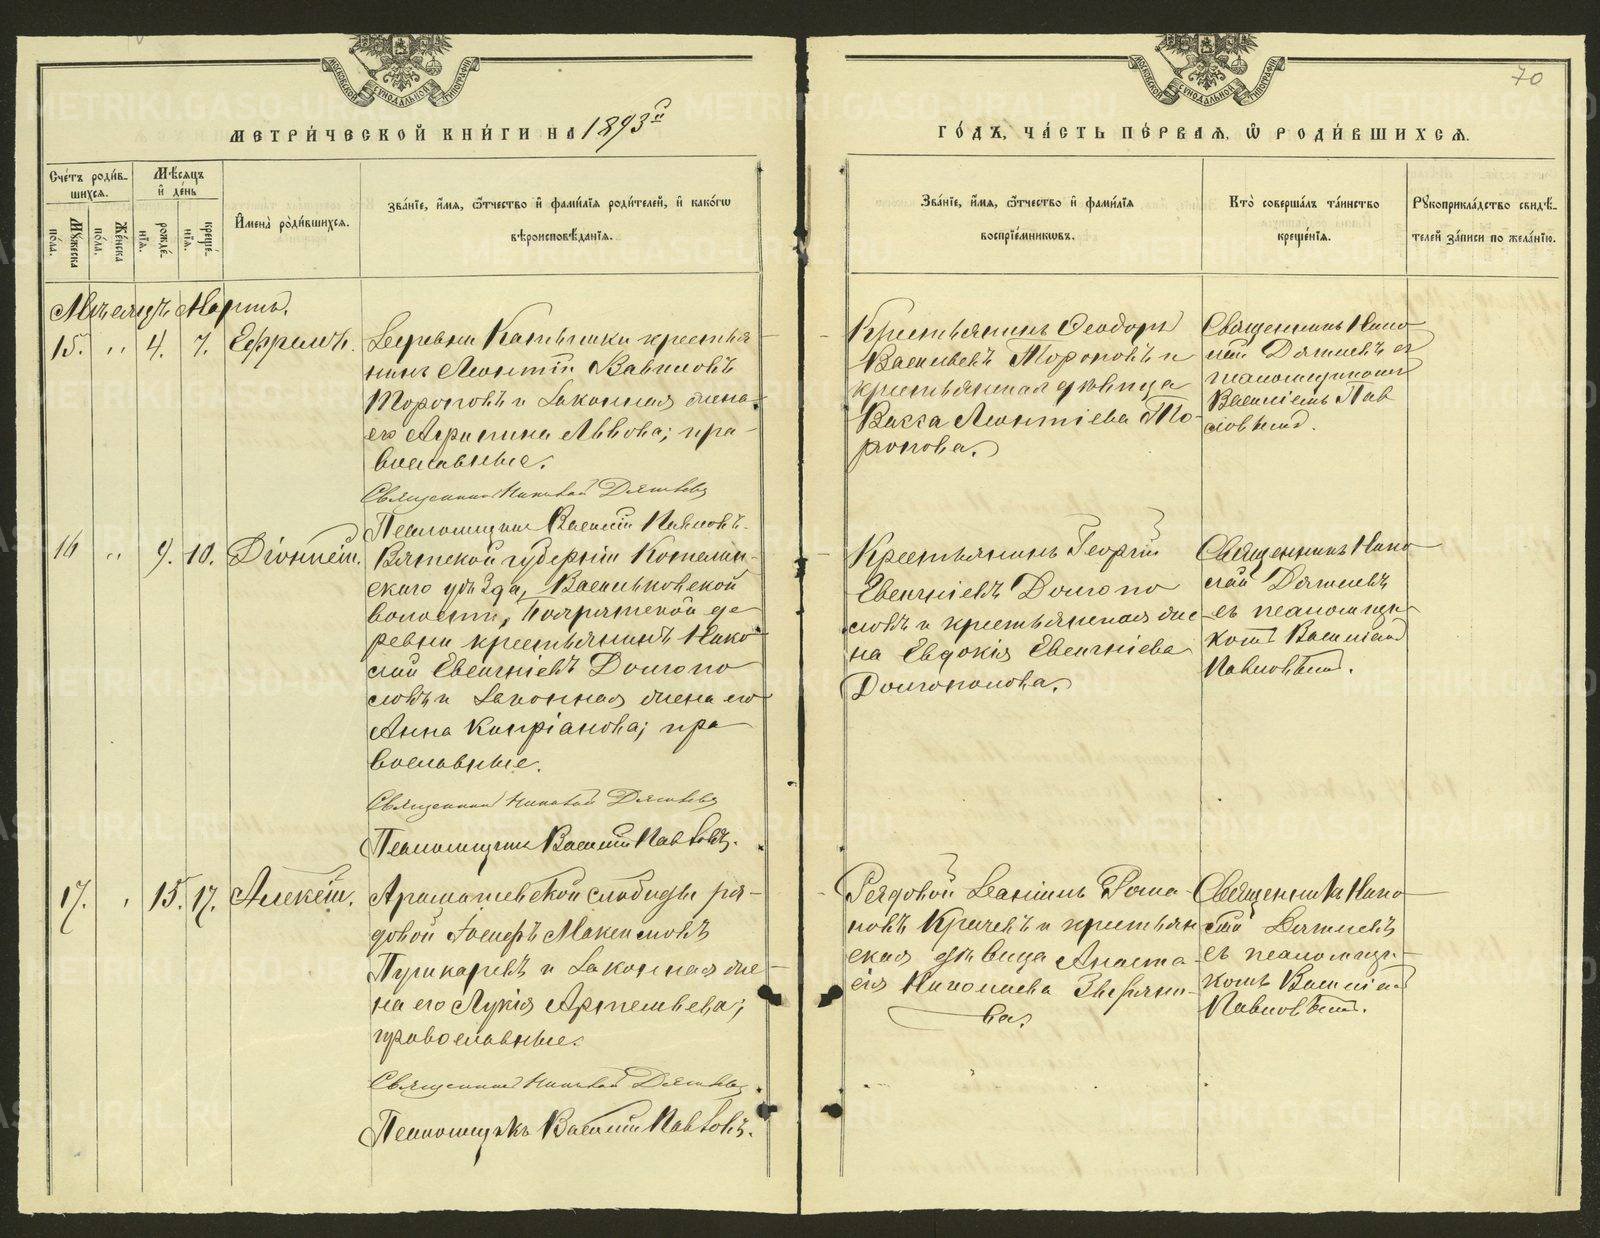 70
МЕТРИ́ЧЕСКОЙ КНИ́ГИ НА 1893й
ГО́ДЪ, ЧА́СТЬ ПЕ́РВАѦ, Ѡ РОДИ́ВШИХСѦ.
Сче́тъ роди́в-
шихсѧ.
Мꙋ́жеска по́ла.
Же́нска по́ла.
Мѣ́сѧцъ
и҆ де́нь
рожде́-нїѧ.
креще́-нїѧ.
И҆мена̀ роди́вшихсѧ.
Зва́нїе, и҆́мѧ, ѻ҆́тчество и҆ фами́лїѧ роди́телей, и҆ како́гѡ
вѣроисповѣ́данїѧ.
Зва́нїе, и҆́мѧ, ѻ҆́тчество и҆ фами́лїѧ
воспрїе́мниковъ.
Кто̀ соверша́лъ та́инство
креще́нїѧ.
Рꙋкоприкла́дство свидѣ́-
телей за́писи по жела́нїю.
Мѣсяцъ Мартъ.
15. " 4. 7. Ефремъ.
Деревни Катышки крестья
нинъ Леонтій Вавиловъ
Тороповъ и законная жена
его Агрипина Львова; пра-
вославные.
Священникъ Николай Дягилевъ
Псаломщикъ Василій Павловъ.
Крестьянинъ Ѳеодоръ
Васильевъ Тороповъ и
крестьянская дѣвица
Васса Леонтіева То-
ропова.
Священникъ Нико
лай Дягилевъ съ
псаломщикомъ
Василіемъ Пав
ловымъ.
16 " 9. 10. Діонисій.
Вятской губерніи Котельни-
скаго уѣзда, Васильковской
волости, Бояринской де
ревни крестьянинъ Нико
лай Евгеніевъ Долгопо
ловъ и законная жена его
Анна Кипріанова; пра
вославные.
Священникъ Николай Дягилевъ
Псаломщикъ Василій Павловъ.
Крестьянинъ Георгій
Евгеніевъ Долгопо
ловъ и крестьянская же
на Евдокія Евгеніева
Долгополова.
Священникъ Нико
лай Дягилевъ
съ псаломщи-
комъ Василіемъ
Павловымъ.
17. " 15. 17. Алексій.
Арамашевской слободы ря-
довой Іосифъ Максимовъ
Пушкаревъ и законная же
на его Лукія Артемьева;
православные.
Священникъ Николай Дягилевъ
Псаломщикъ Василій Павловъ.
Рядовой Рома-
новъ Кричевъ и крестьян
ская дѣвица Анаста-
сія Николаева Звѣряко-
ва.
Священникъ Нико
лай Дягилевъ
съ псаломщи-
комъ Василіемъ
Павловымъ.